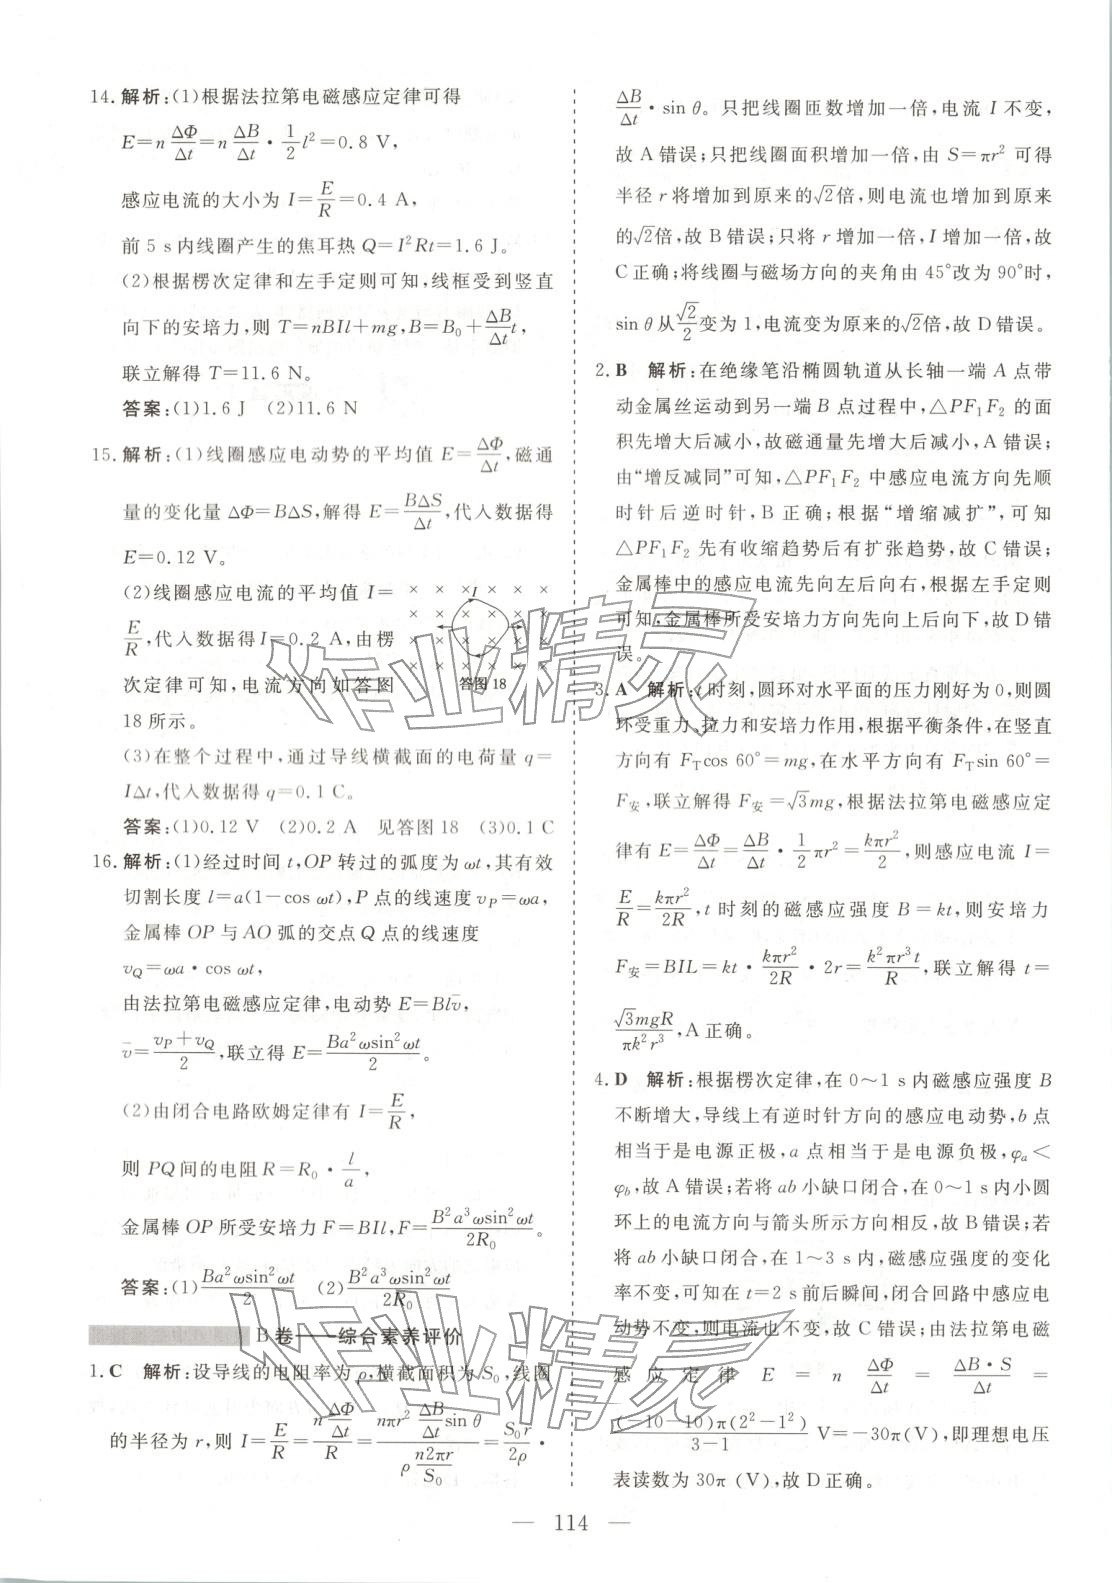 14. 解析:(1)根据法拉第电磁感应定律可得
E=n ΔΦ/Δt=n ΔB/Δt · 1/2 l²=0.8 V,
感应电流的大小为 I=E/R=0.4 A,
前 5 s内线圈产生的焦耳热 Q=I²Rt=1.6 J。
(2)根据楞次定律和左手定则可知,线框受到竖直
向下的安培力,则 T=nBIl+mg,B=B₀+ΔB/Δt t,
联立解得 T=11.6 N。
答案:(1)1.6 J (2)11.6 N
15. 解析:(1)线圈感应电动势的平均值 E=ΔΦ/Δt,磁通
量的变化量 ΔΦ=BΔS,解得 E=BΔS/Δt,代入数据得
E=0.12 V。
(2)线圈感应电流的平均值 I=
E/R,代入数据得 I=0.2 A,由楞
次定律可知,电流方向如答图
18 所示。
I
答图 18
(3)在整个过程中,通过导线横截面的电荷量 q=
IΔt,代入数据得 q=0.1 C。
答案:(1)0.12 V (2)0.2 A 见答图 18 (3)0.1 C
16. 解析:(1)经过时间 t,OP 转过的弧度为 ωt,其有效
切割长度 l=a(1−cos ωt),P 点的线速度 v_P=ωa,
金属棒 OP 与 AO 弧的交点 Q 点的线速度
v_Q=ωa·cos ωt,
由法拉第电磁感应定律,电动势 E=Blv̄,
v̄=(v_P+v_Q)/2,联立得 E=Ba²ωsin²ωt/2。
(2)由闭合电路欧姆定律有 I=E/R,
则 PQ 间的电阻 R=R₀·l/a,
金属棒 OP 所受安培力 F=BIl,F=B²a³ωsin²ωt/2R₀
答案:(1)Ba²ωsin²ωt/2 (2)B²a³ωsin²ωt/2R₀
B 卷——综合素养评价
1. C 解析:设导线的电阻率为 ρ,横截面积为 S₀,线圈
的半径为 r,则 I=E/R=(n ΔΦ/Δt)/R=(nπr² ΔB/Δt sin θ)/(ρ n2πr/S₀)=S₀r/2ρ ·
ΔB/Δt · sin θ。只把线圈匝数增加一倍,电流 I 不变,
故 A 错误;只把线圈面积增加一倍,由 S=πr² 可得
半径 r 将增加到原来的√2倍,则电流也增加到原来
的√2倍,故 B 错误;只将 r 增加一倍,I 增加一倍,故
C 正确;将线圈与磁场方向的夹角由 45°改为 90°时,
sin θ 从√2/2变为 1,电流变为原来的√2倍,故 D 错误。
2. B 解析:在绝缘笔沿椭圆轨道从长轴一端 A 点带
动金属丝运动到另一端 B 点过程中,△PF₁F₂ 的面
积先增大后减小,故磁通量先增大后减小,A 错误;
由“增反减同”可知,△PF₁F₂ 中感应电流方向先顺
时针后逆时针,B 正确;根据“增缩减扩”,可知
△PF₁F₂ 先有收缩趋势后有扩张趋势,故 C 错误;
金属棒中的感应电流先向左后向右,根据左手定则
可知,金属棒所受安培力方向先向上后向下,故 D 错
误。
3. A 解析:t 时刻,圆环对水平面的压力刚好为 0,则圆
环受重力、拉力和安培力作用,根据平衡条件,在竖直
方向有 F_T cos 60°=mg,在水平方向有 F_T sin 60°=
F安,联立解得 F安=√3mg,根据法拉第电磁感应定
律有 E=ΔΦ/Δt=ΔB/Δt · 1/2 πr²=kπr²/2,则感应电流 I=
E/R=kπr²/2R,t 时刻的磁感应强度 B=kt,则安培力
F安=BIL=kt · kπr²/2R · 2r=k²πr³t/R,联立解得 t=
√3mgR/πk²r³,A 正确。
4. D 解析:根据楞次定律,在 0～1 s内磁感应强度 B
不断增大,导线上有逆时针方向的感应电动势,b 点
相当于是电源正极,a 点相当于是电源负极,φₐ<
φ_b,故 A 错误;若将 ab 小缺口闭合,在 0～1 s内小圆
环上的电流方向与箭头所示方向相反,故 B 错误;若
将 ab 小缺口闭合,在 1～3 s内,磁感应强度的变化
率不变,可知在 t=2 s前后瞬间,闭合回路中感应电
动势不变,则电流也不变,故 C 错误;由法拉第电磁
感应定律 E = n ΔΦ/Δt = ΔB·S/Δt =
(−10−10)π(2²−1²)/(3−1) V=−30π(V),即理想电压
表读数为 30π (V),故 D 正确。
— 114 —
作业精灵
作业精灵